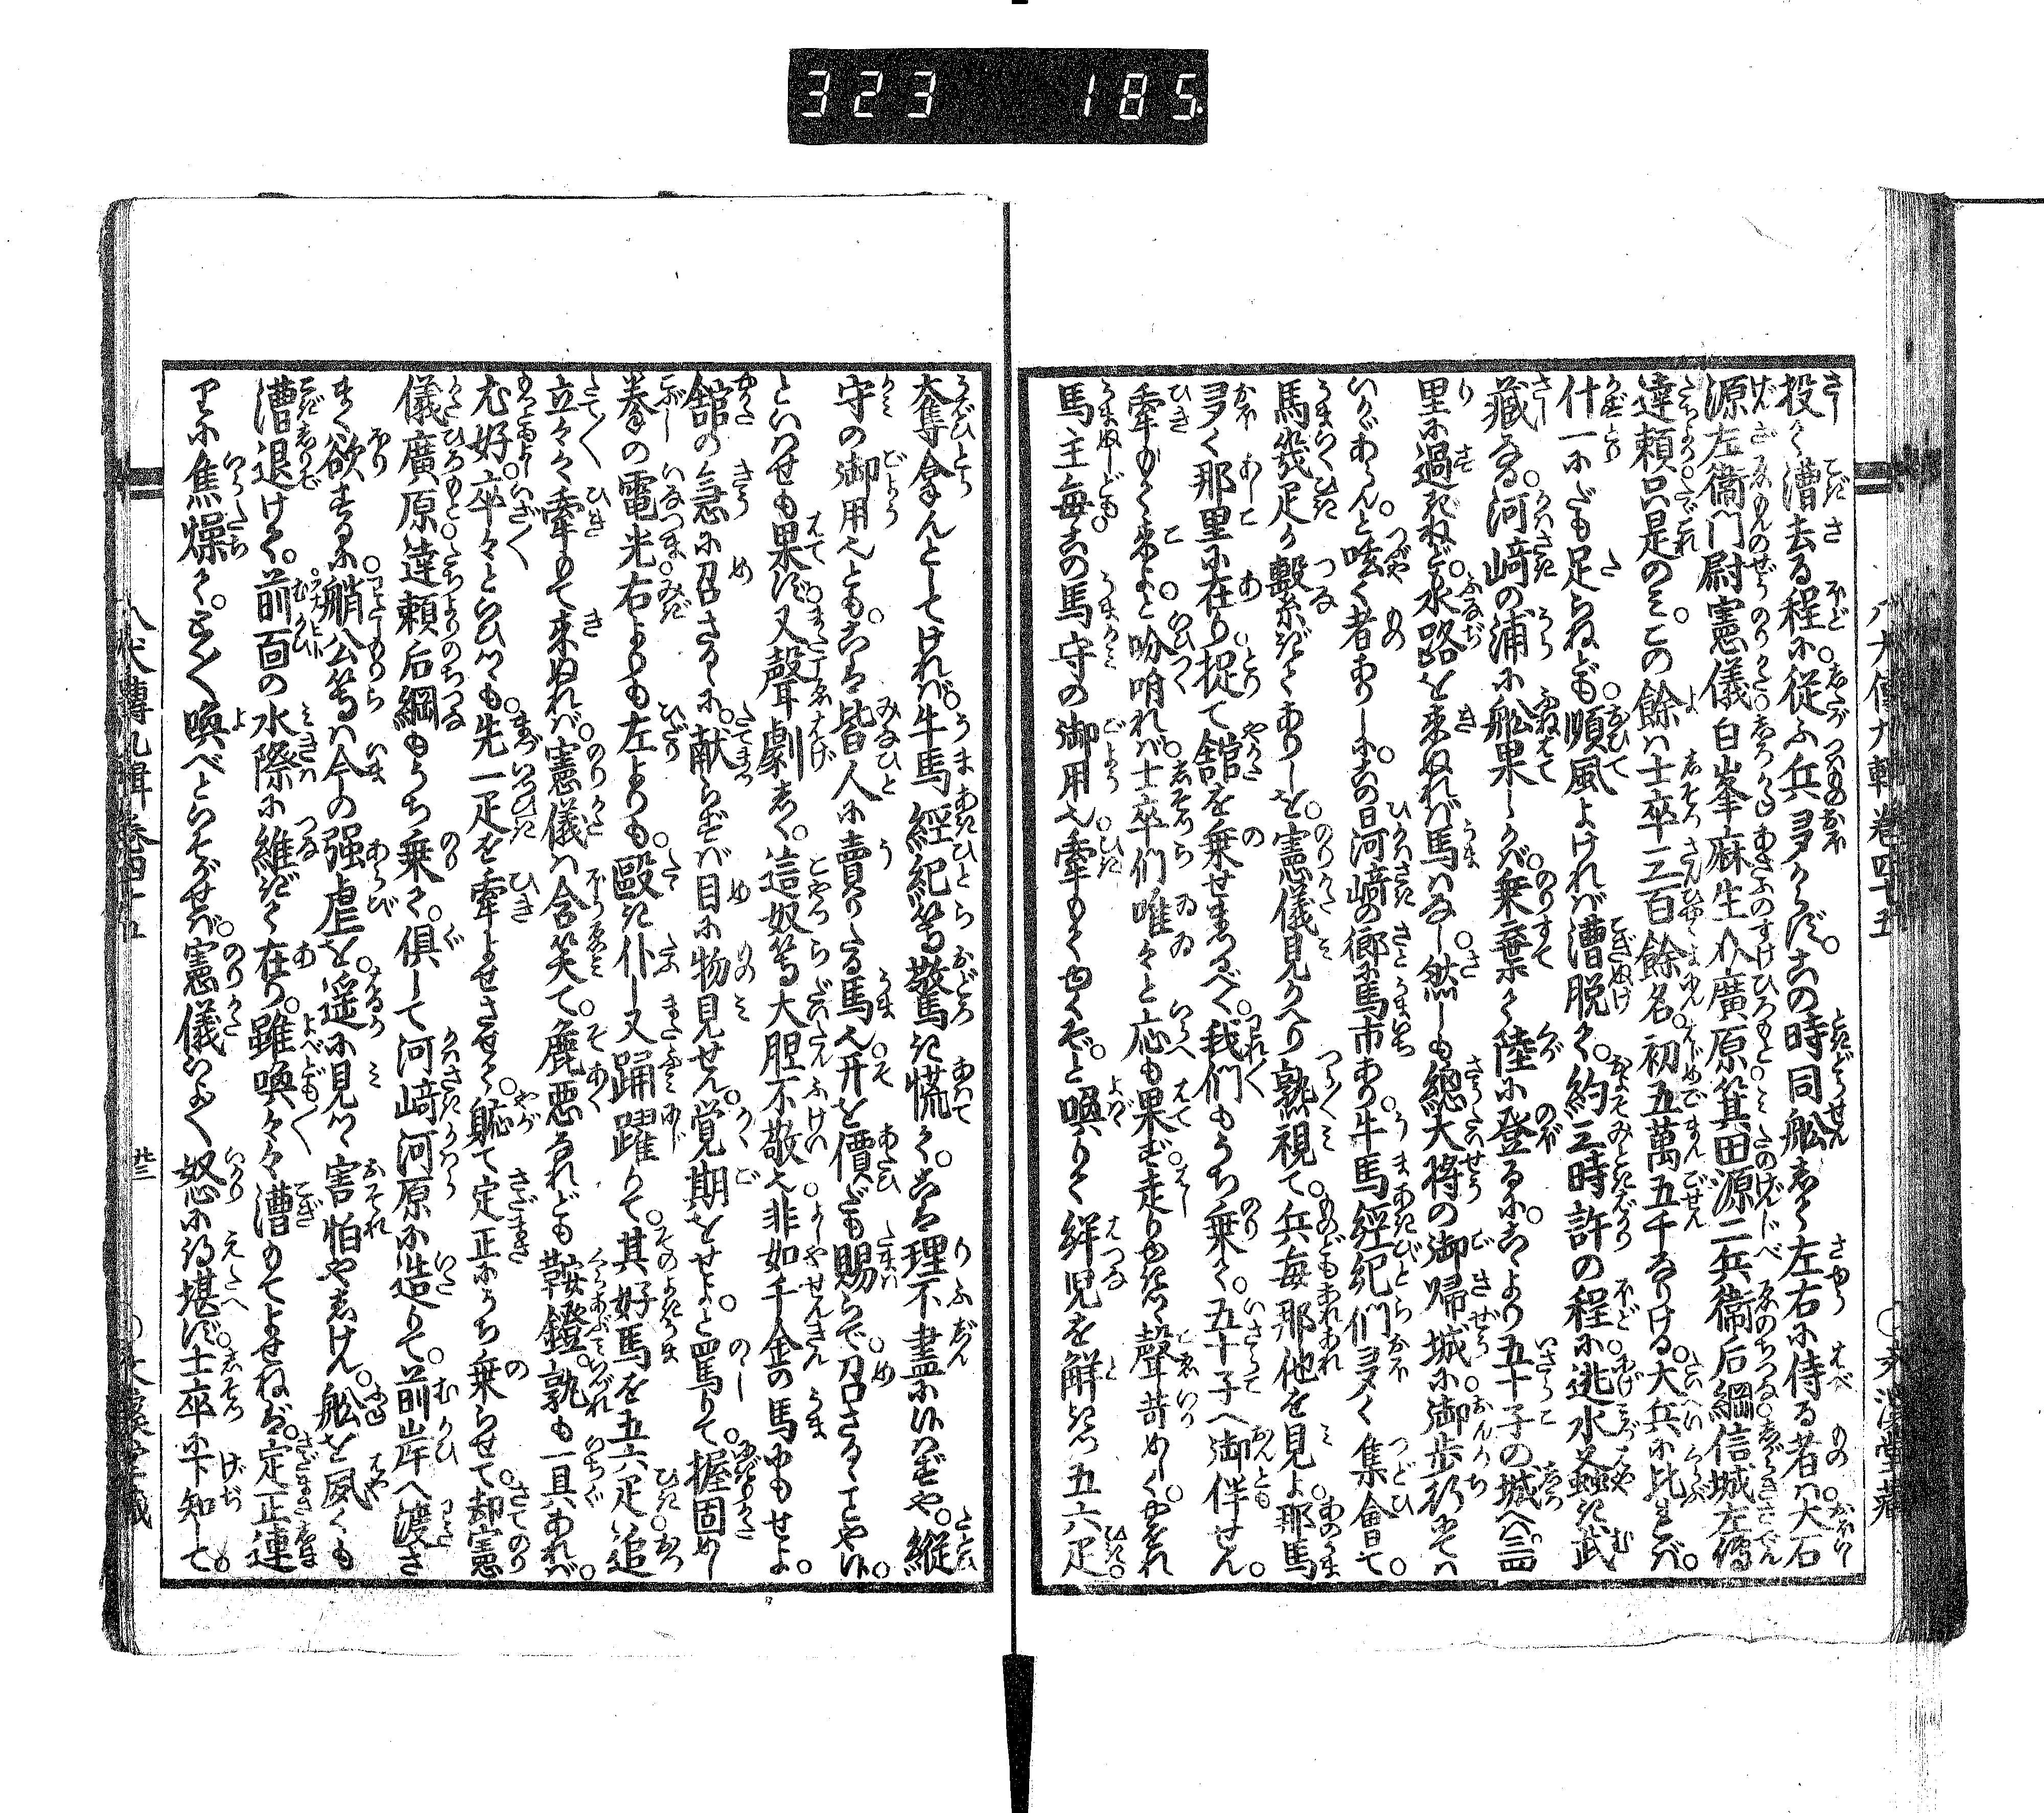 323 185
八犬傳九輯卷四十五
投て漕去る程に従ふ兵多からず。この時同舩して左右に侍る者は大石
源左衞門尉憲儀白峯麻生介廣原箕田源二兵衞后綱信城左傳
達頼只是のミ。この餘ハ士卒三百餘名初五萬五千なりける。大兵に比れバ。
什一にだも足らねども順風よければ漕脱て。約三時許の程に逃水又蚤き武
藏なる。河﨑の浦に舩果しかバ。乗棄て陸に登るに。こゝより五十子の城へ三四
里に過ぎねども。水路を来ぬれバ馬ハなし。然しも総大将の御帰城に御歩行にてハ
いかゞあらんと呟く者ありしに。この日河﨑の郷に馬市あり。牛馬經紀們多く集會て。
馬幾疋か繫ぎてありしを。憲儀見かへり熟視て兵毎那他を見よ。那馬
多く那里に在り。捉て舘を乗せまゐるべく。我們もうち乗て。五十子へ御伴せん。
牽もて来よと吩咐れバ士卒們唯々と応も果ず走りゆきつゝ聲苛めしくやをれ
馬主毎この馬守の御用也。牽もてゆくぞ。と喚りて絆児を解きつゝ五六疋
奪拿んとしてけれバ。牛馬經紀等驚き慌て。こハ理不盡に候ハずや。縦
守の御用也とも。こハ皆人に賣りたる馬也。开を價だも賜らで。召さるゝことや候。
といハせも果ず又聲劇しく。這奴等大胆不敬也。非如千金の馬にもせよ。
舘の急に召さるゝに。献らずバ目に物見せん。覚期をせよ。と罵りて。握固めし
拳の電光右よりも左よりも。毆き仆し又踊躍りて。其好馬を五六疋追
立々々牽もて来ぬれバ。憲儀ハ含笑て。麁惡なれども鞍鐙。孰も一具あれバ。
尤好。卒々といひつゝも。先一疋を牽よせさせて。軈て定正にうち乗らせて。却憲
儀廣原達頼后綱もうち乗て。倶して河﨑河原に造りて。前岸へ渡さ
まく欲するに。艄公等ハ今の强虐を。遥に見つゝ害怕やしけん。舩を夙くも
漕退けて。前面の水際に維ぎて在り。雖喚々々漕もてよせねバ。定正連
りに焦燥て。よべ〳〵喚べといそがせバ。憲儀いよ〳〵怒に得堪ず。士卒に下知して。
八犬傳九輯卷四十五
廿三